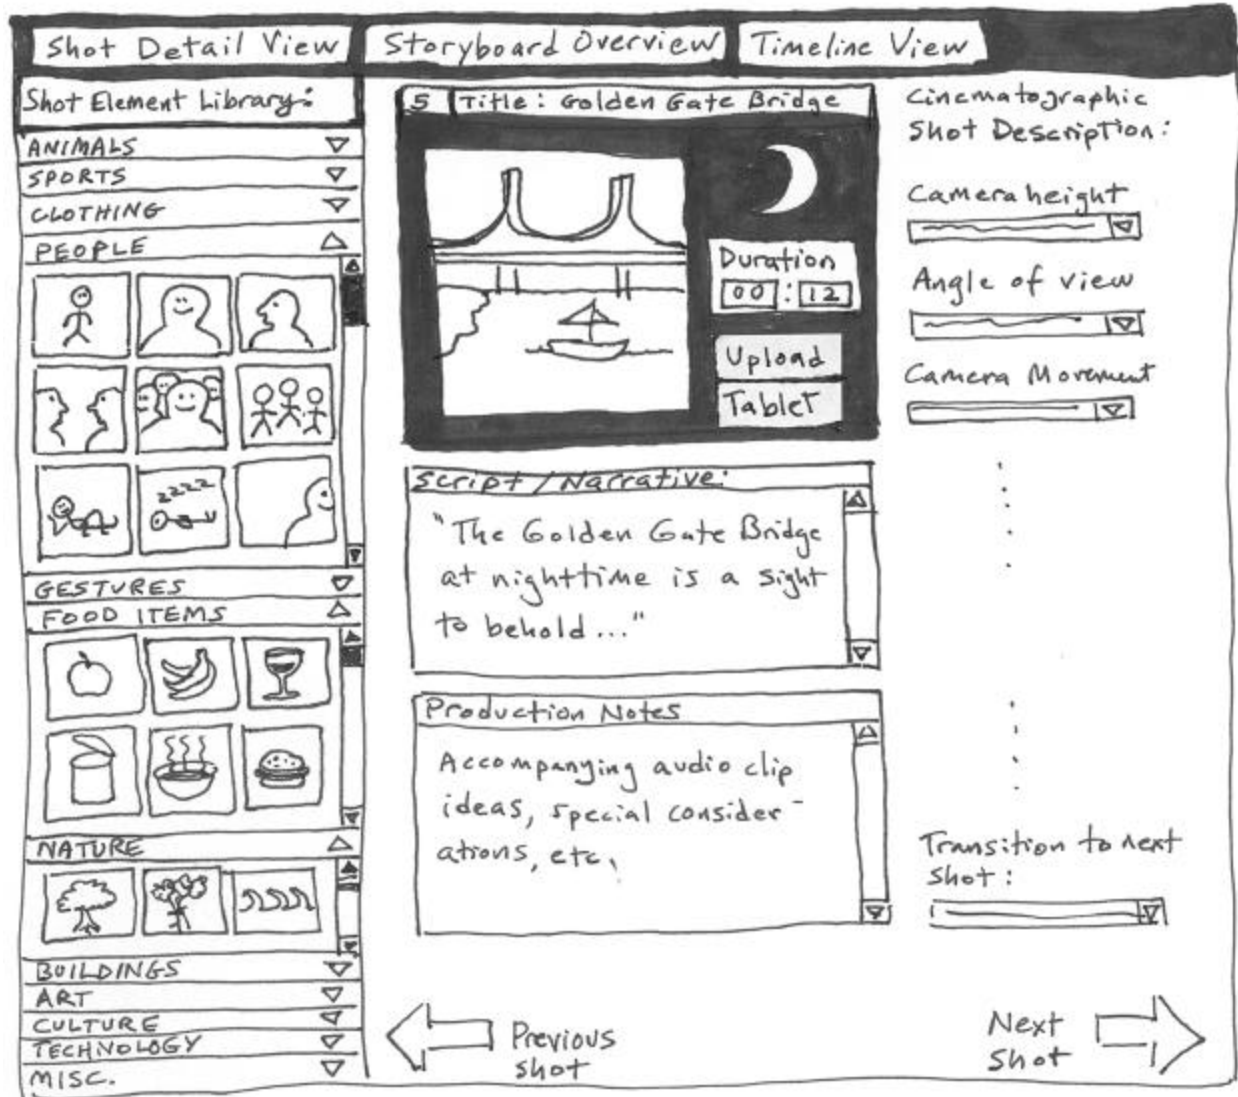 Shot Detail View
Storyboard Overview
Timeline View
Shot Element Library:
ANIMALS
SPORTS
CLOTHING
PEOPLE
zzzz
GESTURES
FOOD ITEMS
NATURE
BUILDINGS
ART
CULTURE
TECHNOLOGY
MISC.
5 Title: Golden Gate Bridge
Duration
00 : 12
Upload
Tablet
Script / Narrative:
"The Golden Gate Bridge
at nighttime is a sight
to behold..."
Production Notes
Accompanying audio clip
ideas, special consider-
ations, etc.
Previous
shot
Cinematographic
Shot Description:
Camera height
Angle of view
Camera Movement
Transition to next
shot:
Next
Shot